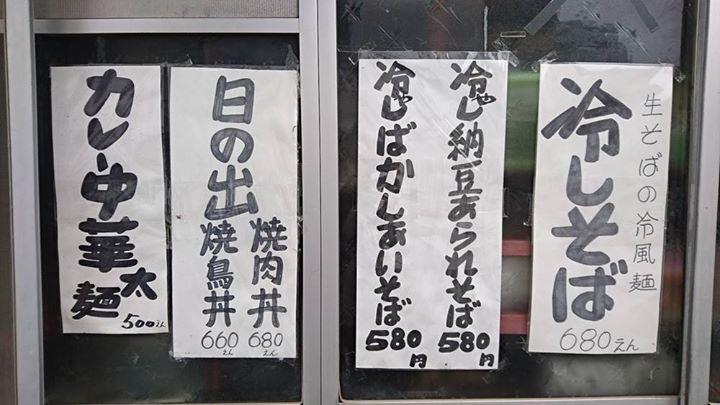 生そばの冷風麺
冷しそば
680えん
冷し納豆あられそば
580円
冷しばかしあいそば
580円
日の出
焼肉丼
680えん
焼鳥丼
660えん
カレー中華
太麺
500えん